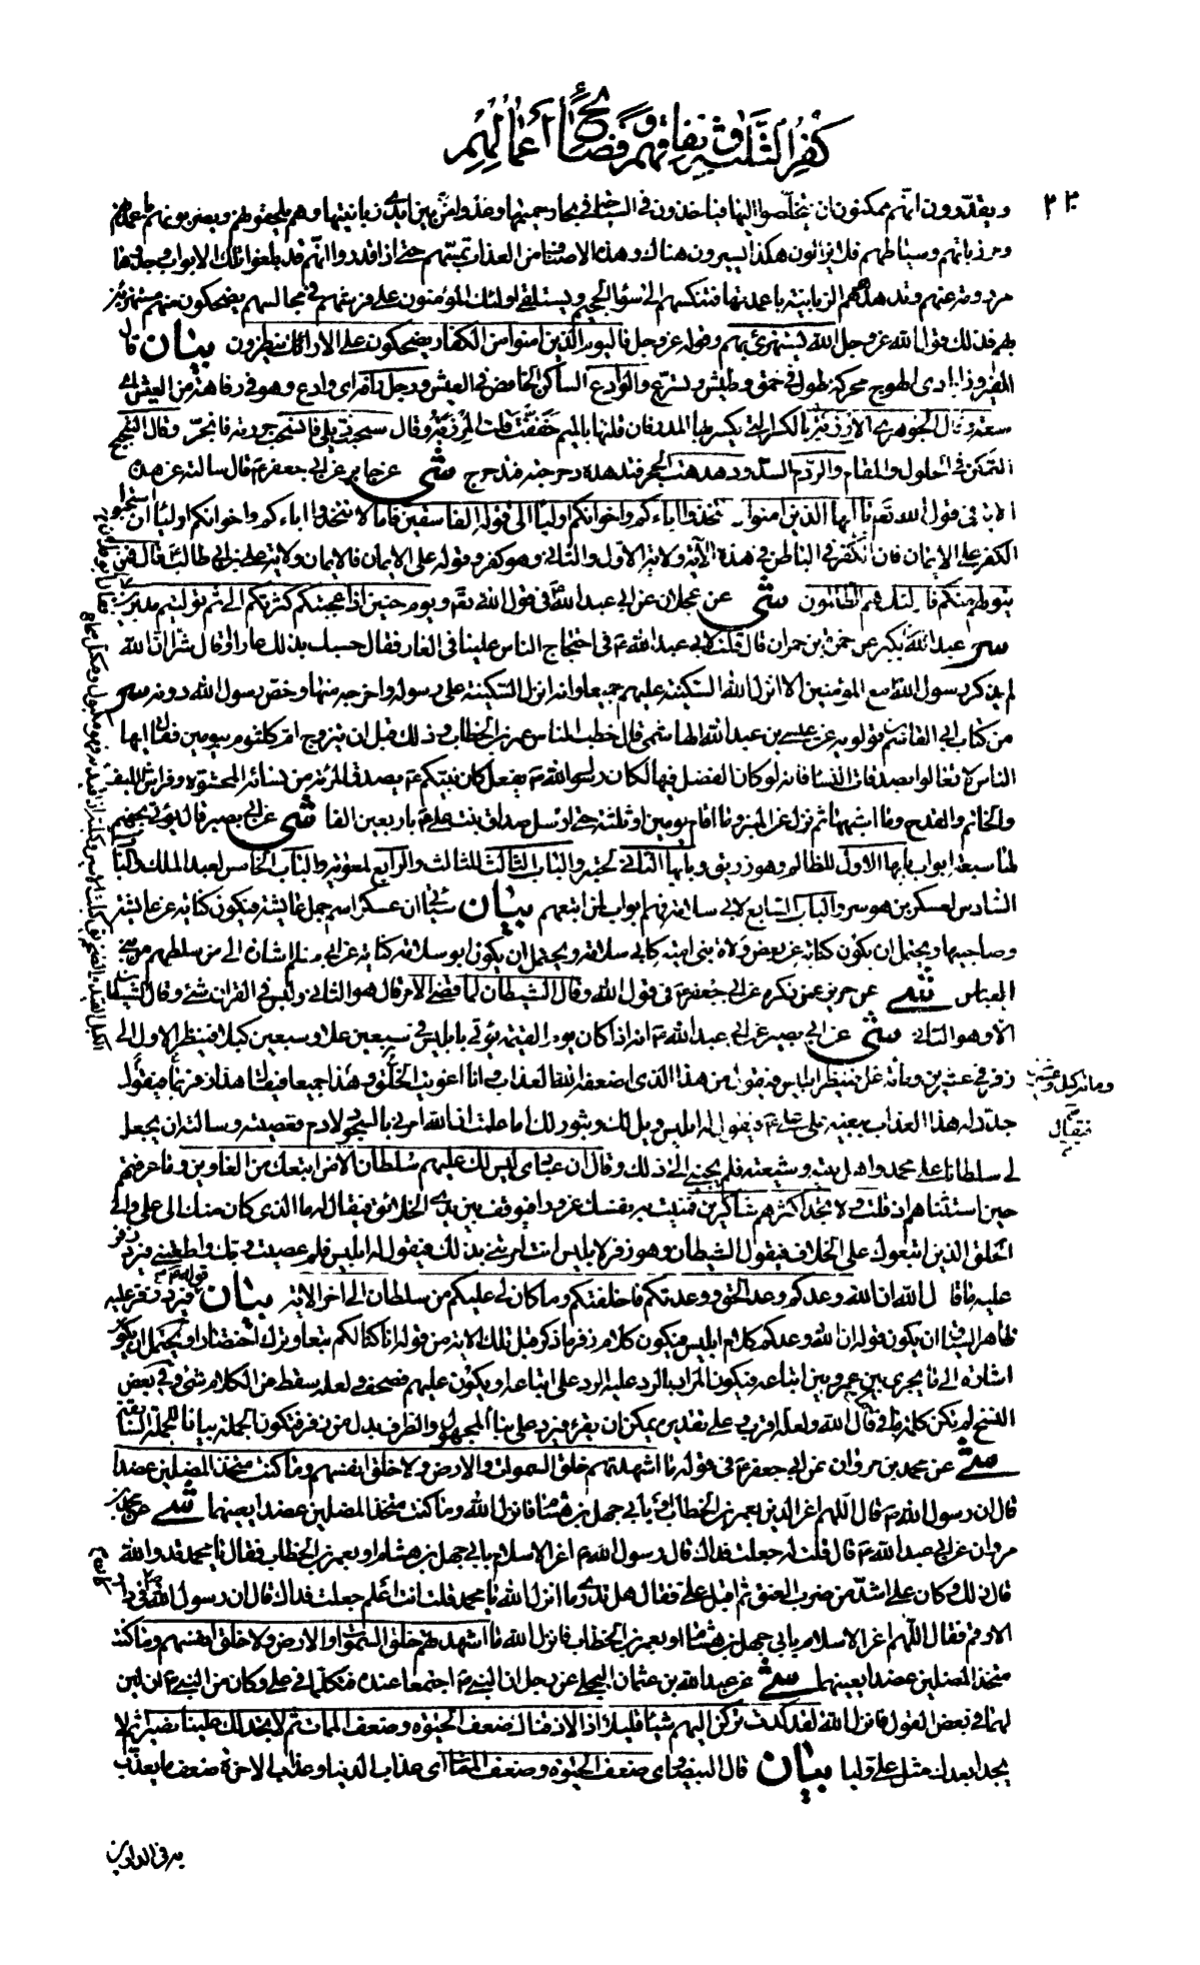 كفر الثلاثة ونفاقهم وفضائح أعمالهم
ويقدرون انهم ممكنون ان يتخلصوا اليها فياخذون في السباحة في بحار حميمها وعدوا من بين ايدي زبانيتها وهم يلحقونهم ويضربونهم باعمدتهم
ومرزباتهم وسياطهم فلا يزالون هكذا يسيرون هناك وهذه الاصناف من العذاب تمسهم حتى اذا قدروا انهم قد بلغوا تلك الابواب وجدوها
مردومة عنهم وتدهدههم الزبانية باعمدتها فتنكسهم الى سواء الجحيم ويستلقي اولئك المؤمنون على فرشهم في مجالسهم يضحكون منهم مستهزئين
بهم فذلك قول الله عز وجل الله يستهزئ بهم وقوله عز وجل فاليوم الذين امنوا من الكفار يضحكون على الارائك ينظرون بيان قال
الفيروزابادي الهوج محركة طول في حمق وطيش وتسرع والوادع الساكن الخافض في العيش ورجل رافه اي وادع وهو في رفاهة من العيش اي
سعة وقال الجوهري الارزبة بالكسر التي يكسر بها المدر فان قلتها بالميم خففت قلت المرزبة وقال سحبت ذيلي فانسحب جررته فانجر وقال التبحبح
التمكن في الحلول والمقام والردم السد ودهدهت الحجر فتدهده دحرجته فتدحرج شى عن جابر عن ابي جعفر ع قال سالته عن هذه
الاية في قول الله تع يا ايها الذين امنوا لا تتخذوا اباءكم واخوانكم اولياء الى قوله الفاسقين فاما لا تتخذوا اباءكم واخوانكم اولياء ان استحبوا
الكفر على الايمان فان الكفر في الباطن في هذه الآية ولاية الاول والثاني وهو كفر وقوله على الايمان فالايمان ولاية علي بن ابي طالب ع قال فمن
يتولهم منكم فاولئك هم الظالمون شى عن عجلان عن ابي عبد الله ع في قول الله تع ويوم حنين اذ اعجبتكم كثرتكم الى ثم وليتم مدبرين
سر عبد الله بن بكير عن حمزة بن حمران قال قلت لابي عبد الله ع في احتجاج الناس علينا في الغار فقال حسبك بذلك عارا او قال شرا ان الله
لم يذكر رسول الله ص مع المؤمنين الا انزل الله السكينة عليهم جميعا وانه انزل السكينة على رسوله واخرجه منها وخص رسول الله دونه سر
من كتاب ابي القاسم بن قولويه عن عيسى بن عبد الله الهاشمي قال خطب الناس عمر بن الخطاب وذلك قبل ان يتزوج ام كلثوم بيومين فقال ايها
الناس لا تغالوا بصدقات النساء فانه لو كان الفضل فيها لكان رسول الله ص يفعله كان نبيكم ص يصدق المرئة من نسائه المحشوة وفراش الليف
والخاتم والقدح وما اشبهها ثم نزل عن المنبر فما اقام يومين او ثلثة حتى ارسل صداق بنت علي ع باربعين الفا شى عن ابي بصير قال يؤتى بجهنم
لها سبعة ابواب بابها الاول للظالم وهو زريق وبابها الثاني لحبتر والباب الثالث للثالث والرابع لمعوية والباب الخامس لعبد الملك والباب
السادس لعسكر بن هوسر والباب السابع لابي سلامة فهم ابواب لمن اتبعهم بيان سياتي ان عسكرا اسم جمل عائشة فيكون كناية عن عائشة
وصاحبيها ويحتمل ان يكون كناية عن بعض ولاة بني امية كابي سلامة ويحتمل ان يكون ابو سلامة كناية عن ابي مسلم اشارة الى من سلطهم من بني
العباس شى عن حريز عمن ذكره عن ابي جعفر ع في قول الله وقال الشيطان لما قضي الامر قال هو الثاني وليس في القران شئ وقال الشيطان
الا وهو الثاني شى عن ابي بصير عن ابي عبد الله ع انه اذا كان يوم القيمة يؤتى بابليس في سبعين غلا وسبعين كبلا فينظر الاول الى
زفر في عشرين ومائة غل فينظر ابليس فيقول من هذا الذي اضعفه الله العذاب وانا اغويت الخلق وهذا جميعا فيقال هذا زفر بما فيقول
جدد له هذا العذاب ببغيه على علي ع فيقول له ابليس ويل لك وثبور لك اما علمت ان الله امرني بالسجود لادم فعصيته وسالته ان يجعل
لي سلطانا على محمد واهل بيته وشيعته فلم يجبني الى ذلك وقال ان عبادي ليس لك عليهم سلطان الا من اتبعك من الغاوين وما عرفتهم
حين استثناهم اذ قلت ولا تجد اكثرهم شاكرين فمنيت به نفسك غرورا فيوقف بين يدي الخلائق فيقال له ما الذي كان منك الى علي والى
الخلق الذين اتبعوك على الخلاف فيقول الشيطان وهو زفر لابليس انت امرتني بذلك فيقول له ابليس فلم عصيت ربك واطعتني فيرد زفر
عليه ما قال الله ان الله وعدكم وعد الحق ووعدتكم فاخلفتكم وما كان لي عليكم من سلطان الى اخر الاية بيان قوله ع فيرد زفر عليه
ظاهر السياق ان يكون قوله ان الله وعدكم كلام ابليس فيكون كلام زفر ما ذكر قبل تلك الاية من قوله انا كنا لكم تبعا وترك اختصارا ويحتمل ان يكون
اشارة الى ما يجري بين عمر وبين اتباعه فيكون المراد بالرد عليه الرد على اتباعه او يكون عليهم فصحف ولعله سقط من الكلام شئ وفي بعض
النسخ لم يكن كلمة ما في قال الله ولعله اقرب وعلى تقديره يمكن ان يقرء فيرد على بناء المجهول والظرف بدل من زفر فتكون الجملة بيانا للجملة السابقة
شى عن محمد بن مروان عن ابي جعفر ع في قوله ما اشهدتهم خلق السموات والارض ولا خلق انفسهم وما كنت متخذ المضلين عضدا
قال ان رسول الله ص قال اللهم اعز الدين بعمر بن الخطاب او بابي جهل بن هشام فانزل الله وما كنت متخذ المضلين عضدا يعنيهما شى عن محمد بن
مروان عن ابي عبد الله ع قال قلت له جعلت فداك قال رسول الله ص اعز الاسلام بابي جهل بن هشام او بعمر بن الخطاب فقال يا محمد قد والله
قال ذلك وكان علي اشد من ضرب العنق ثم اقبل علي فقال هل تدري ما انزل الله يا محمد قلت انت اعلم جعلت فداك قال ان رسول الله ص كان في دار
الارقم فقال اللهم اعز الاسلام بابي جهل بن هشام او بعمر بن الخطاب فانزل الله ما اشهدتهم خلق السموات والارض ولا خلق انفسهم وما كنت
متخذ المضلين عضدا يعنيهما شى عن عبد الله بن عثمان البجلي عن رجل ان النبي ص اجتمعا عنده فتكلما في علي وكان من النبي ص ان لين
لهما في بعض القول فانزل الله لقد كدت تركن اليهم شيئا قليلا اذا لاذقناك ضعف الحيوة وضعف الممات ثم لا تجد لك علينا نصيرا ثم لا
يجدا بعدك مثل علي وليا بيان قال البيضاوي ضعف الحيوة وضعف الممات اي عذاب الدنيا وعذاب الاخرة ضعف ما يعذب
به في الدارين